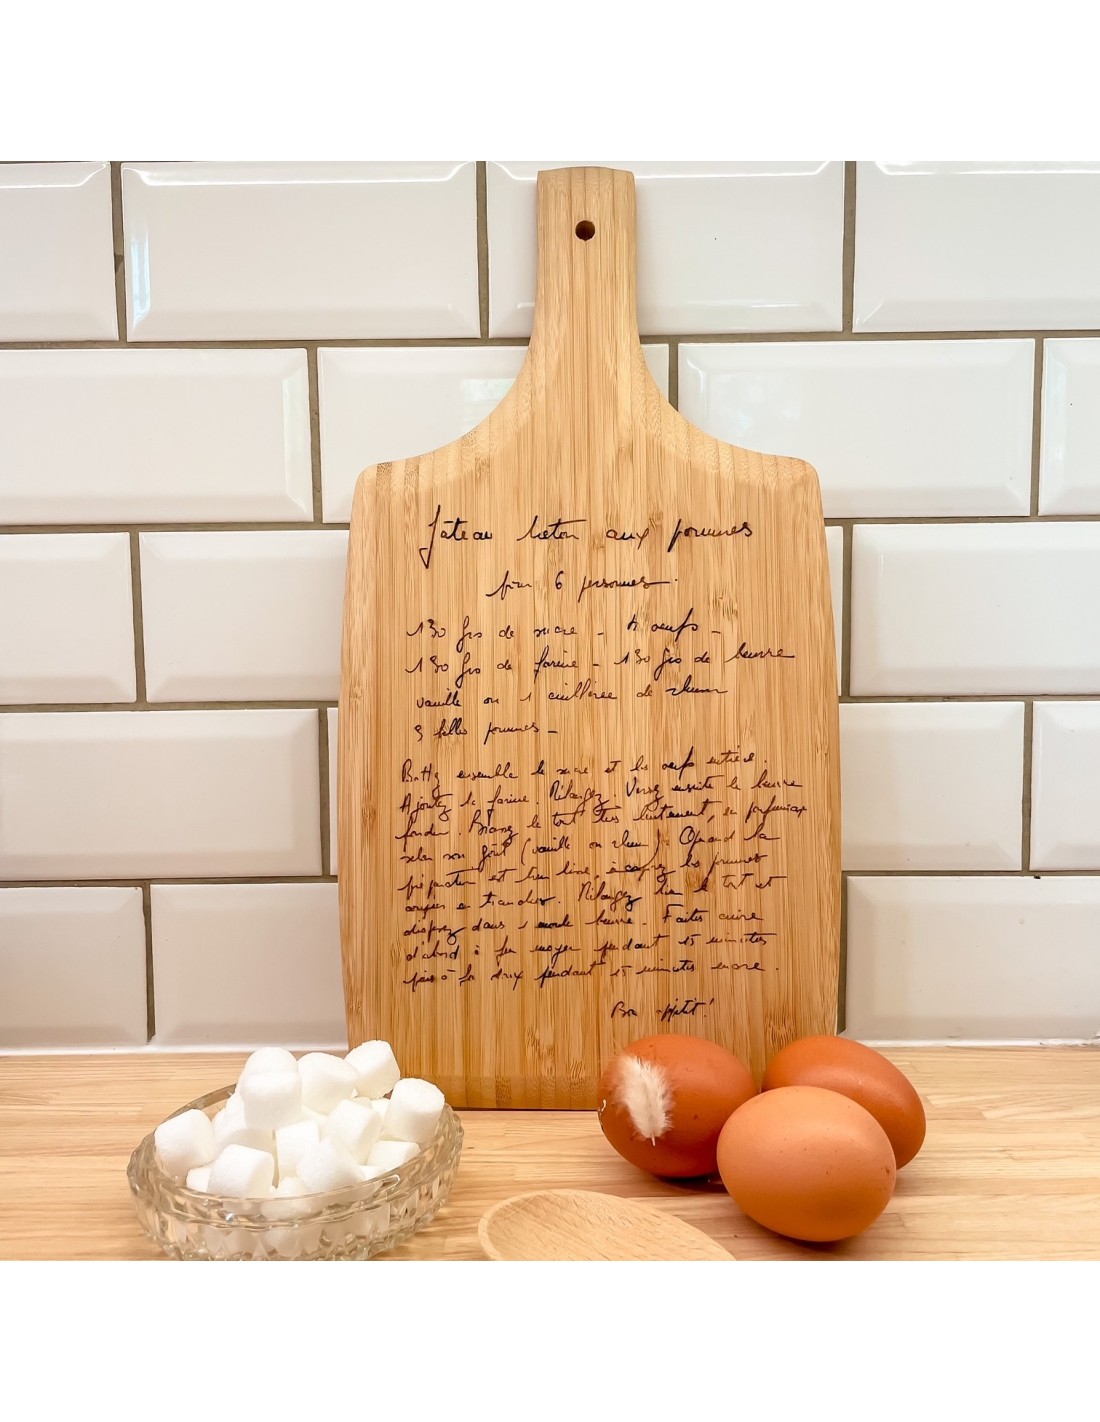 Gâteau breton aux pommes
pour 6 personnes.
130 grs de sucre - 4 oeufs -
130 grs de farine - 130 grs de beurre
vanille ou 1 cuillerée de rhum
3 belles pommes -
Battez ensemble le sucre et les oeufs entiers.
Ajoutez la farine. Mélangez. Versez ensuite le beurre
fondu. Brassez le tout très lentement, en parfumant
selon son goût (vanille ou rhum). Quand la
préparation est bien lisse, incorporez les pommes
coupées en tranches. Mélangez bien le tout et
disposez dans 1 moule beurré. Faites cuire
d'abord à feu moyen pendant 15 minutes
puis à feu doux pendant 15 minutes encore.
Bon appétit!